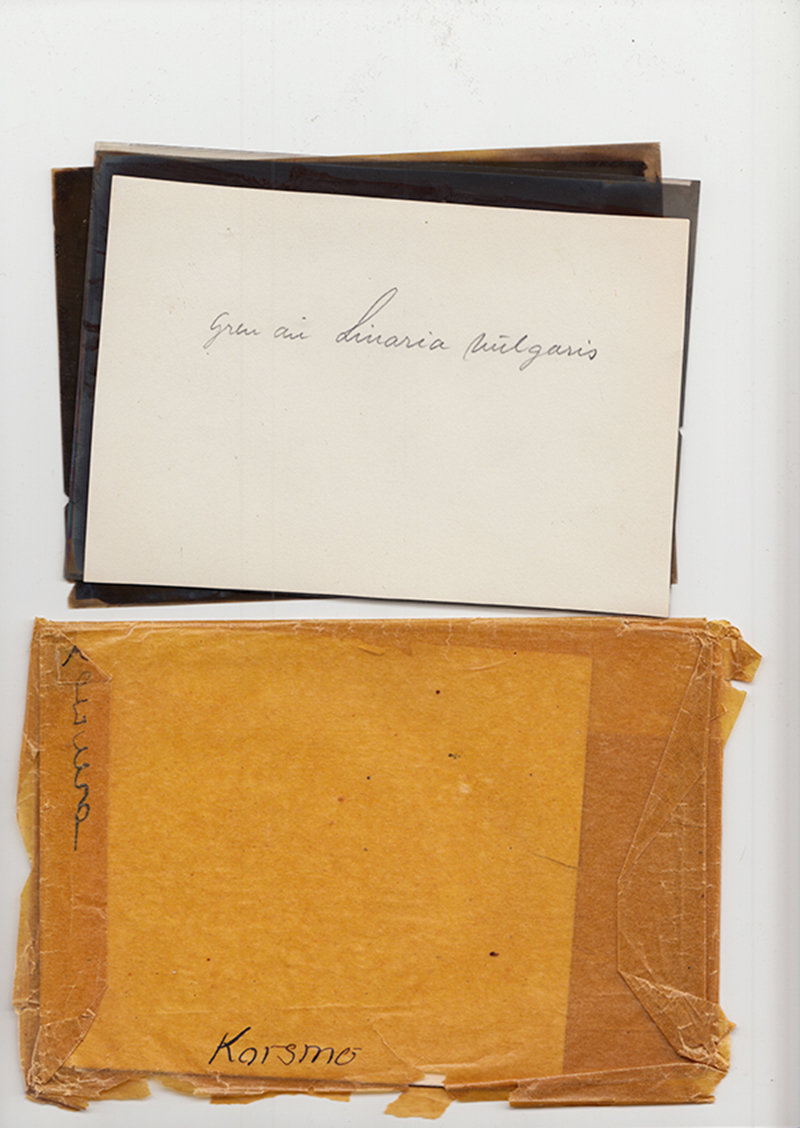 Gren av Linaria vulgaris
Korsmo